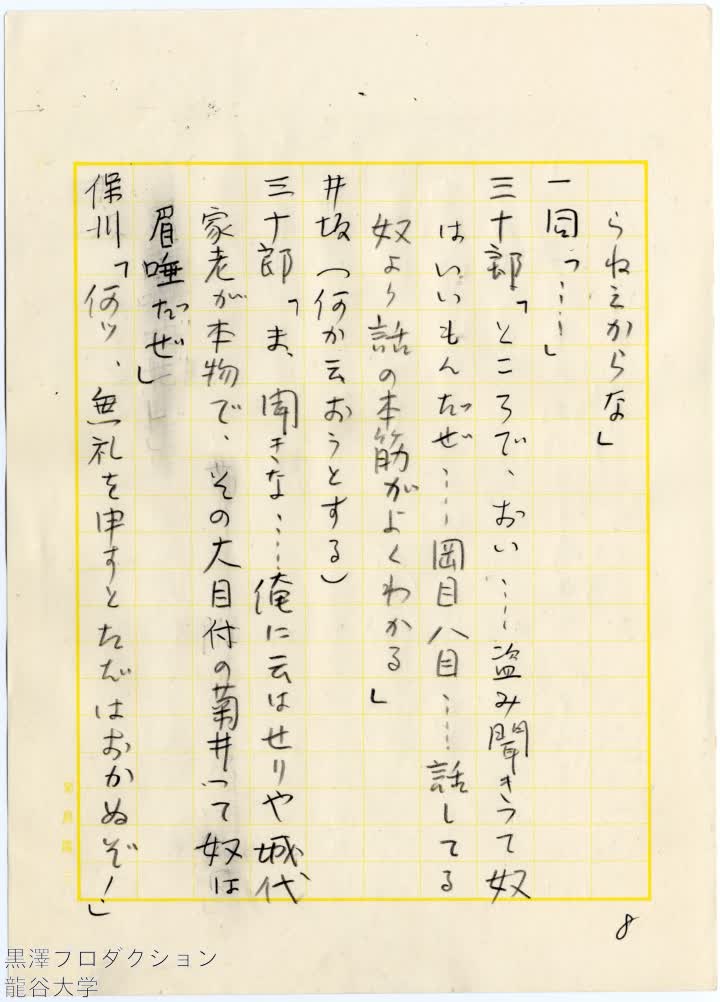 られえからな」
一同「‥‥」
三十郎「ところで、おい‥‥盗み聞きって奴
はいいもんだぜ‥‥岡目八目‥‥話してる
奴より話の本筋がよくわかる」
井坂（何か云おうとする）
三十郎「ま、聞きな‥‥俺に云はせりや城代
家老が本物で、その大目付の菊井って奴は
眉唾だぜ」
保川「何ッ、無礼を申すとたゞはおかぬぞ！」
8
黒澤プロダクション
龍谷大学